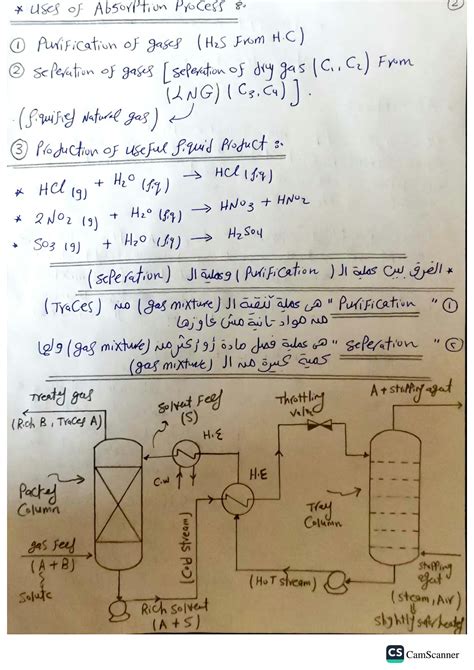 * Uses of Absorption Process :-
(2)
① Purification of gases (H2S From H.C)
② seperation of gases [seperation of dry gas (C1, C2) From
(LNG) (C3, C4)].
(liquified Natural gas)
③ Production of useful liquid Product :-
* HCl (g) + H2O (liq) → HCl (liq)
* 2 NO2 (g) + H2O (liq) → HNO3 + HNO2
* SO3 (g) + H2O (liq) → H2SO4
* الفرق بين عملية ال (Purification) وعملية ال (seperation)
① "Purification" هى عملية تنقية ال (gas mixture) من (Traces)
من مواد تانية مش عاوزها
② "seperation" هى عملية فصل مادة أو أكثر من (gas mixture) ولها
كمية كبيرة من ال (gas mixture)
Treaty gas
(Rich B, Traces A)
Solvent Feed
(S)
H.E
C.W
Throttling
valve
A + stripping agent
Packed
Column
H.E
Tray
Column
(Cold stream)
gas feed
(A + B)
Solute
Rich Solvent
(A + S)
(HOT stream)
stripping
agent
(steam, Air)
slightly superheated
CS CamScanner